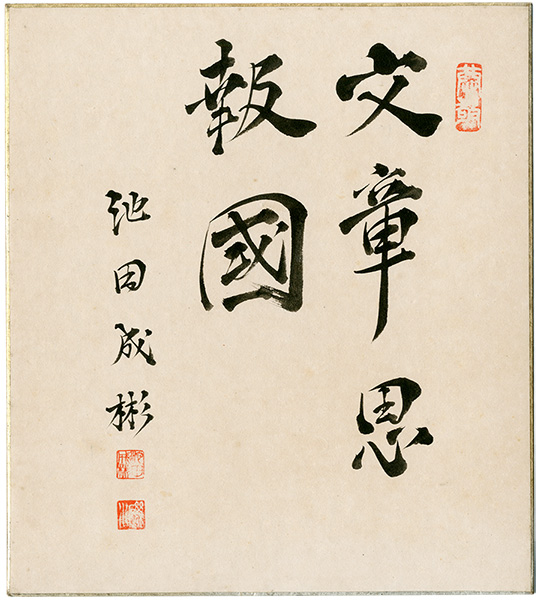 文章思
報國
池田成彬